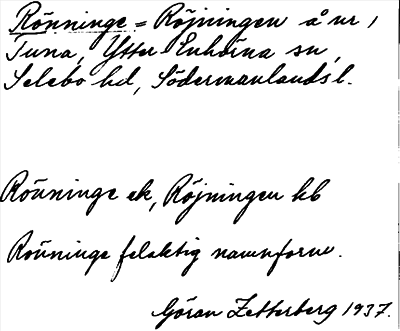 Rönninge = Röjningen å nr 1
Tuna, Ytter Enhörna sn,
Selebo hd, Södermanlands l.
Rönninge ek, Röjningen kb
Rönninge felaktig namnform.
Göran Zetterberg 1937.